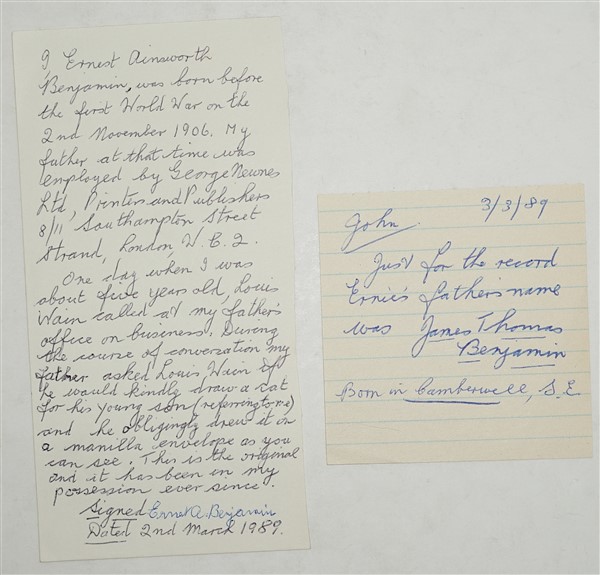 I, Ernest Ainsworth
Benjamin, was born before
the first World War on the
2nd November 1906. My
father at that time was
employed by George Newnes
Ltd, Printers and Publishers
8/11 Southampton Street
Strand, London, W.C.2.
One day when I was
about five years old, Louis
Wain called at my father's
office on business. During
the course of conversation my
father asked Louis Wain if
he would kindly draw a cat
for his young son (referring to me)
and he obligingly drew it on
a manilla envelope as you
can see. This is the original
and it has been in my
possession ever since.
Signed Ernest A. Benjamin
Dated 2nd March 1989.
3/3/89
John
Just for the record
Ernie's fathers name
was James Thomas
Benjamin
Born in Camberwell, S.E